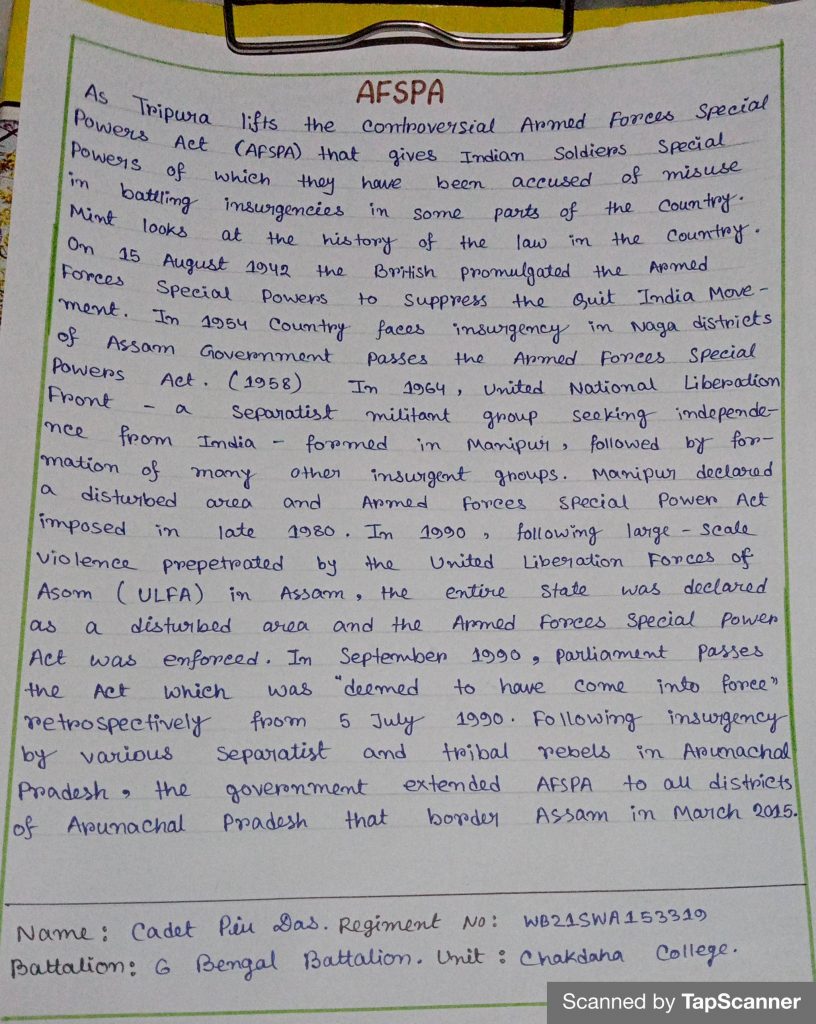 AFSPA
As Tripura lifts the controversial Armed Forces Special
Powers Act (AFSPA) that gives Indian Soldiers Special
Powers of which they have been accused of misuse
in battling insurgencies in some parts of the Country.
Mint looks at the history of the law in the Country.
On 15 August 1942 the British promulgated the Armed
Forces Special Powers to suppress the Quit India Move-
ment. In 1954 Country faces insurgency in Naga districts
of Assam Government passes the Armed Forces Special
Powers Act. (1958) In 1964, United National Liberation
Front - a Separatist militant group seeking independe-
nce from India - formed in Manipur, followed by for-
mation of many other insurgent groups. Manipur declared
a disturbed area and Armed Forces Special Power Act
imposed in late 1980. In 1990, following large-scale
violence prepetrated by the United Liberation Forces of
Asom (ULFA) in Assam, the entire State was declared
as a disturbed area and the Armed Forces Special Power
Act was enforced. In September 1990, parliament passes
the Act which was "deemed to have come into force"
retrospectively from 5 July 1990. Following insurgency
by various Separatist and tribal rebels in Arunachal
Pradesh, the government extended AFSPA to all districts
of Arunachal Pradesh that border Assam in March 2015.
Name: Cadet Piu Das. Regiment No: WB21SWA153319
Battalion: 6 Bengal Battalion. Unit: Chakdaha College.
Scanned by TapScanner